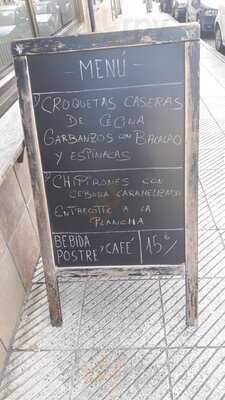 - MENÚ -
1) CROQUETAS CASERAS
DE CECINA
GARBANZOS CON BACALAO
Y ESPINACAS
2) CHIPIRONES CON
CEBOLLA CARAMELIZADA
ENTRECOTTE A LA
PLANCHA
BEBIDA
POSTRE, CAFÉ 15€